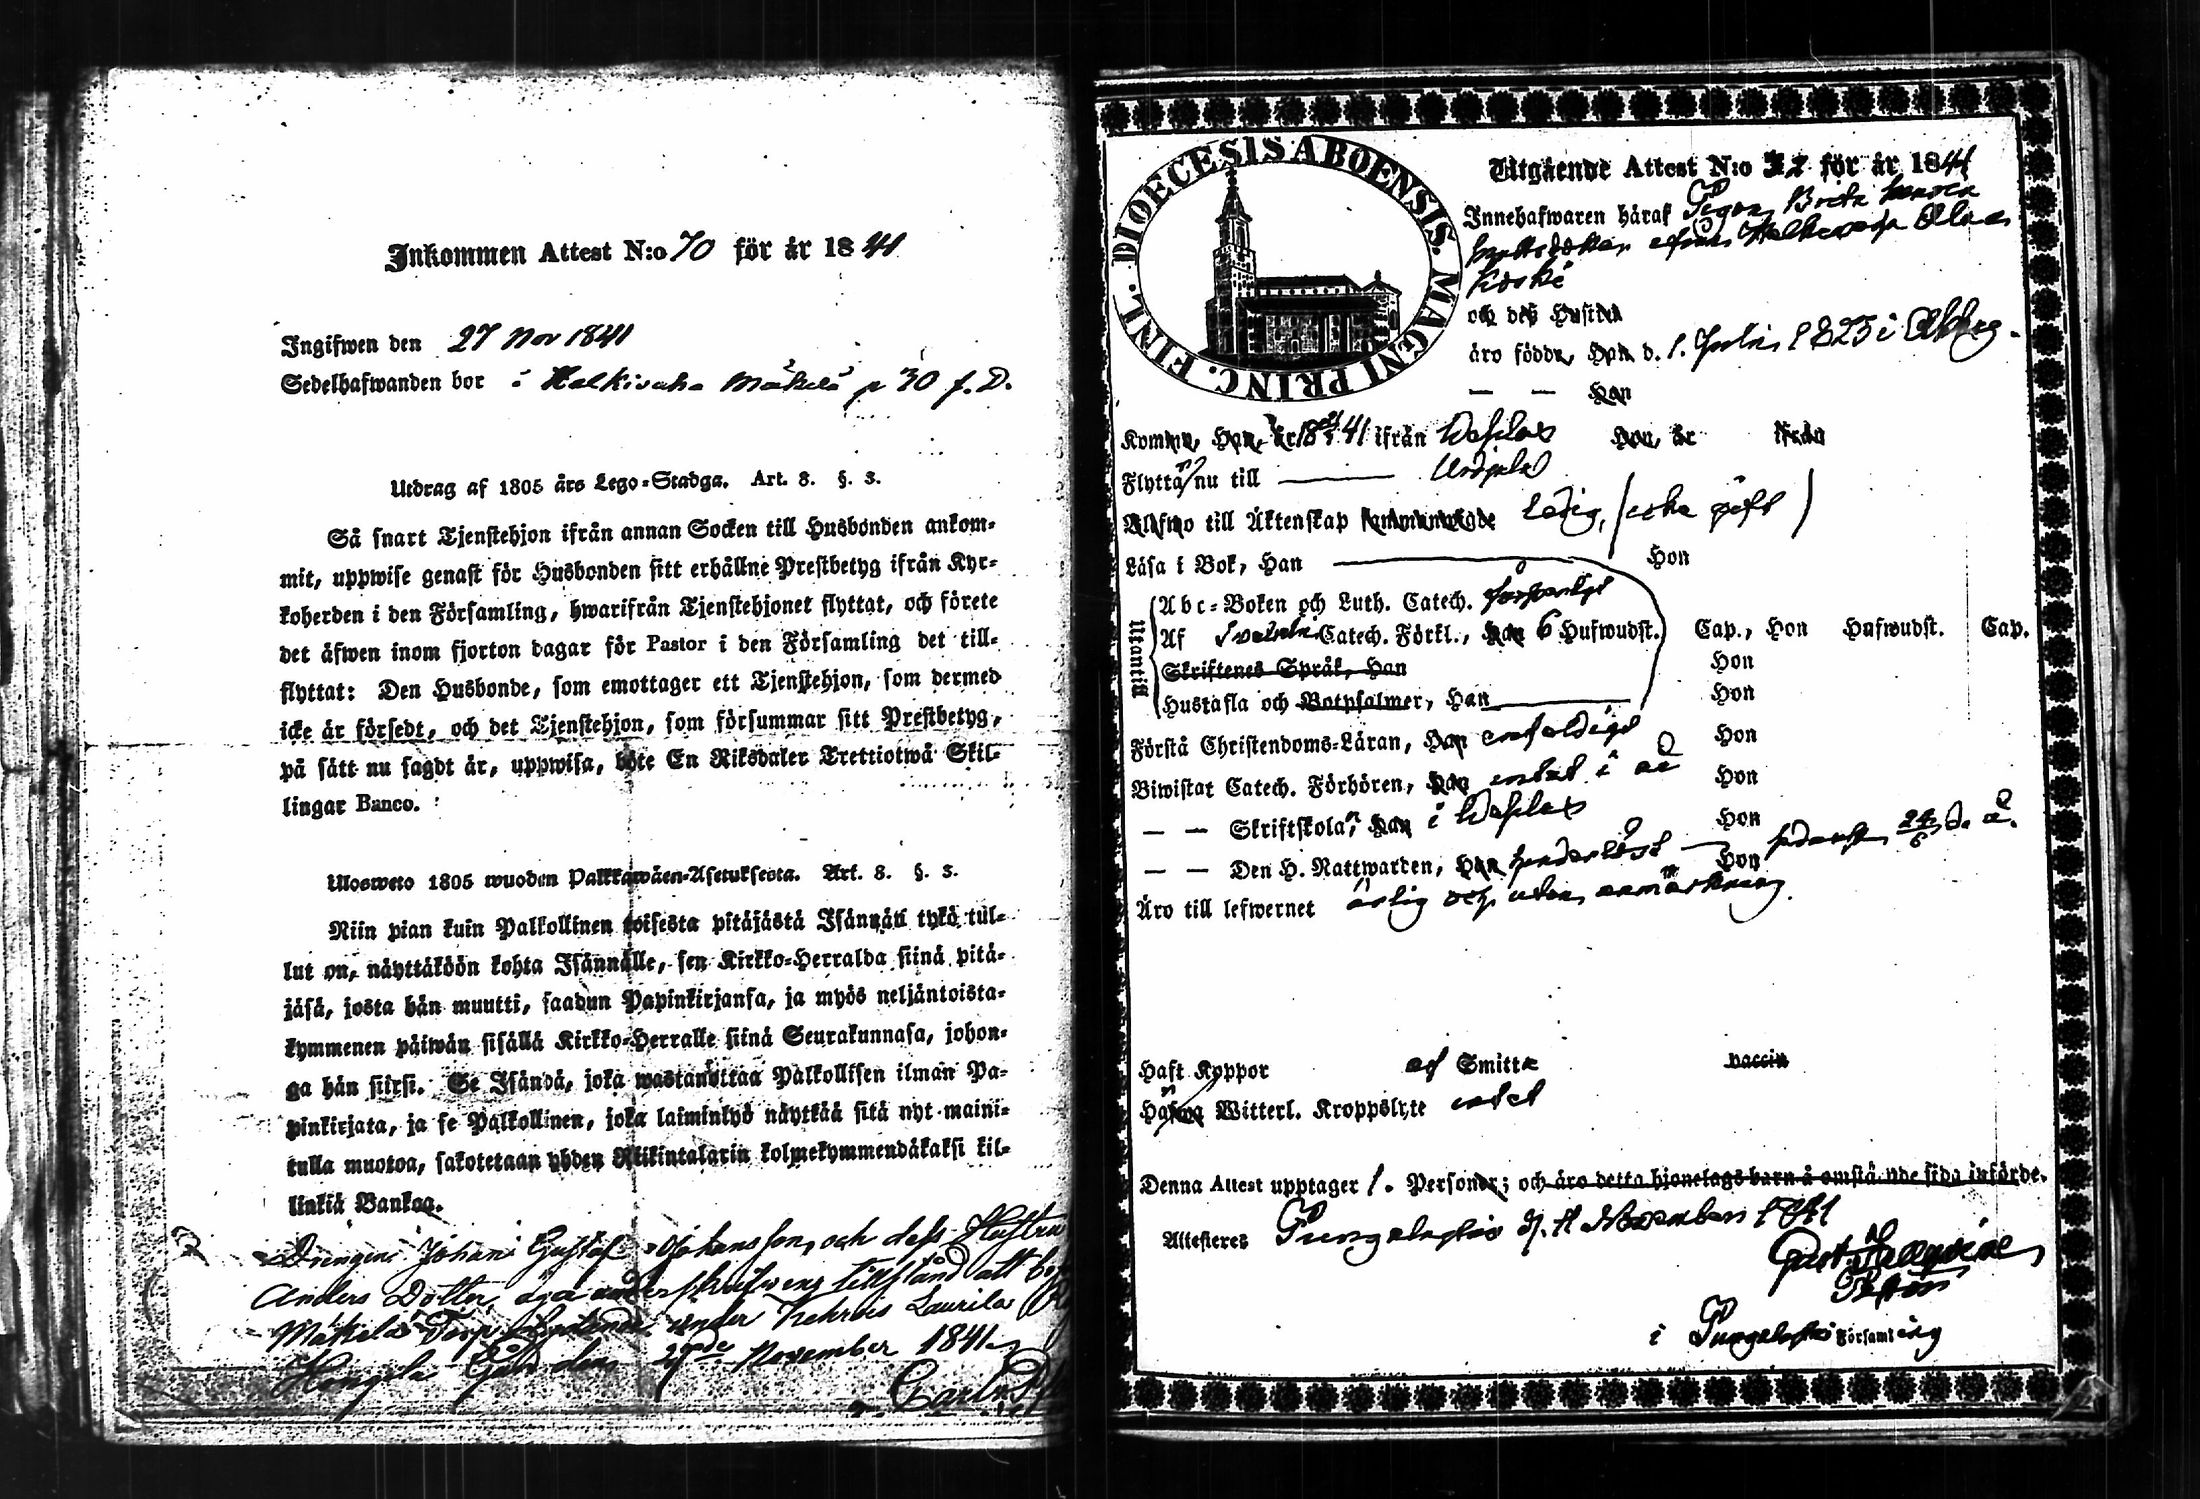 Inkommen Attest N:o 70 för år 1841
Ingifwen den 27 Nov 1841
Sedelhafwanden bor i Halkivaha Mäkelä p 30 f. D.
Utdrag af 1805 års Lego-Stadga. Art. 8. §. 3.
Så snart Tjenstehjon ifrån annan Socken till Husbonden ankom-
mit, uppwise genast för Husbonden sitt erhållne Prestbetyg ifrån Kyr-
koherden i den Församling, hwarifrån Tjenstehjonet flyttat, och förete
det äfwen inom fjorton dagar för Pastor i den Församling det till-
flyttat: Den Husbonde, som emottager ett Tjenstehjon, som dermed
icke är försedt, och det Tjenstehjon, som försummar sitt Prestbetyg,
på sätt nu sagdt är, uppwisa, böte En Riksdaler Trettiotwå Skil-
lingar Banco.
Ulosweto 1805 wuoden Palkkawäen-Asetuksesta. Art. 8. §. 3.
Niin pian kuin Palkollinen toisesta pitäjästä Isännän tykö tul-
lut on, näyttäköön kohta Isännälle, sen Kirkko-Herralda siinä pitä-
jäsä, josta hän muutti, saadun Papinkirjansa, ja myös neljäntoista-
kymmenen päiwän sisällä Kirkko-Herralle siinä Seurakunnasa, johon-
ga hän siirsi. Se Isändä, joka wastanottaa Palkollisen ilman Pa-
pinkirjata, ja se Palkollinen, joka laiminlyö näyttää sitä nyt maini-
tulla muotoa, sakotetaan yhden Riikintalarin kolmekymmendäkaksi kil-
linkiä Bankoa.
Drengen Johan Gustaf Johansson, och dess Hustru
Anders Dotter, äga underskrifwens tillstånd att
Mäkelä Torp under Kehrois Laurila
Gård den 27de November 1841
Carl
DIOECESIS ABOENSIS. MAGNI PRINC. FINL.
Utgående Attest N:o 32 för år 1841
Innehafwaren häraf Pigan Brita
ifrån Halkivaha
Koski
och des Hustru
äro födde, Han d. 1. Julii 1825 i
— — Hon
Komne, Han, år 1841 ifrån Wesilax Hon, år ifrån
Flytta nu till — Urdiala
Blifwo till Äktenskap sammanwigde Ledig, (icke gift)
Läsa i Bok, Han — Hon
Utantill
Abc-Boken och Luth. Catech. försvarligt
Af Svebelii Catech. Förkl., Han 6 Hufwudst. Cap., Hon Hufwudst. Cap.
Skriftenes Språk, Han Hon
Hustafla och Botpsalmer, Han Hon
Förstå Christendoms-Läran, Han enfaldigt Hon
Biwistat Catech. Förhören, Han intet i år Hon
— — Skriftskola, Han i Wesilax Hon
— — Den H. Nattwarden, Han Hon 24/6 d. å.
Äro till lefwernet ärlig och utan anmärkning.
Haft Koppor af Smitta vaccin
Hafwa Witterl. Kroppslyte intet
Denna Attest upptager 1. Personer; och äro detta hjonelags barn å omstående sida införde.
Attesterer Pungalaitio d. 11 November 1841
Gust.
Pastor
i Pungalaitio Församling